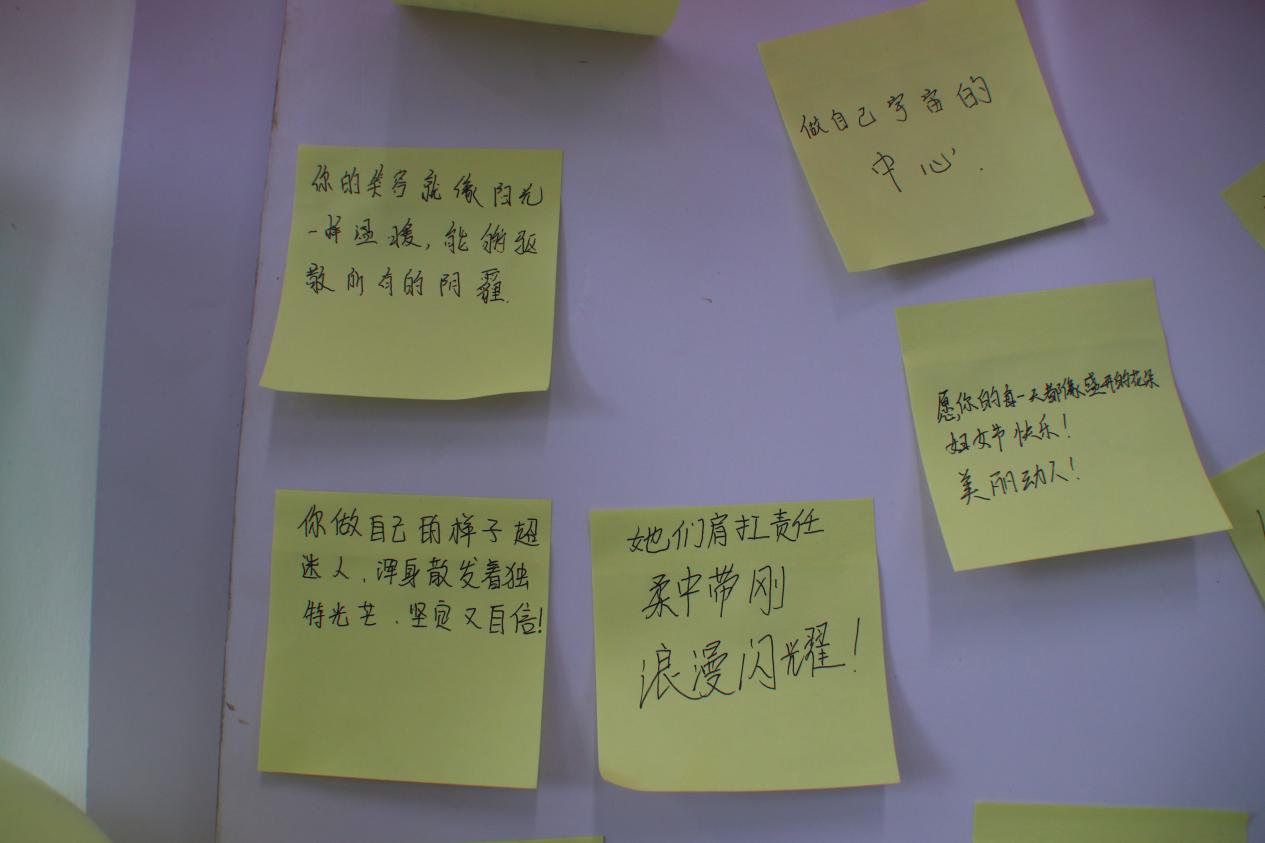 你的笑容就像阳光
一样温暖，能够驱
散所有的阴霾.
做自己宇宙的
中心.
愿你的每一天都像盛开的花朵
妇女节快乐！
美丽动人！
你做自己的样子超
迷人，浑身散发着独
特光芒.坚定又自信!
她们肩扛责任
柔中带刚
浪漫闪耀！